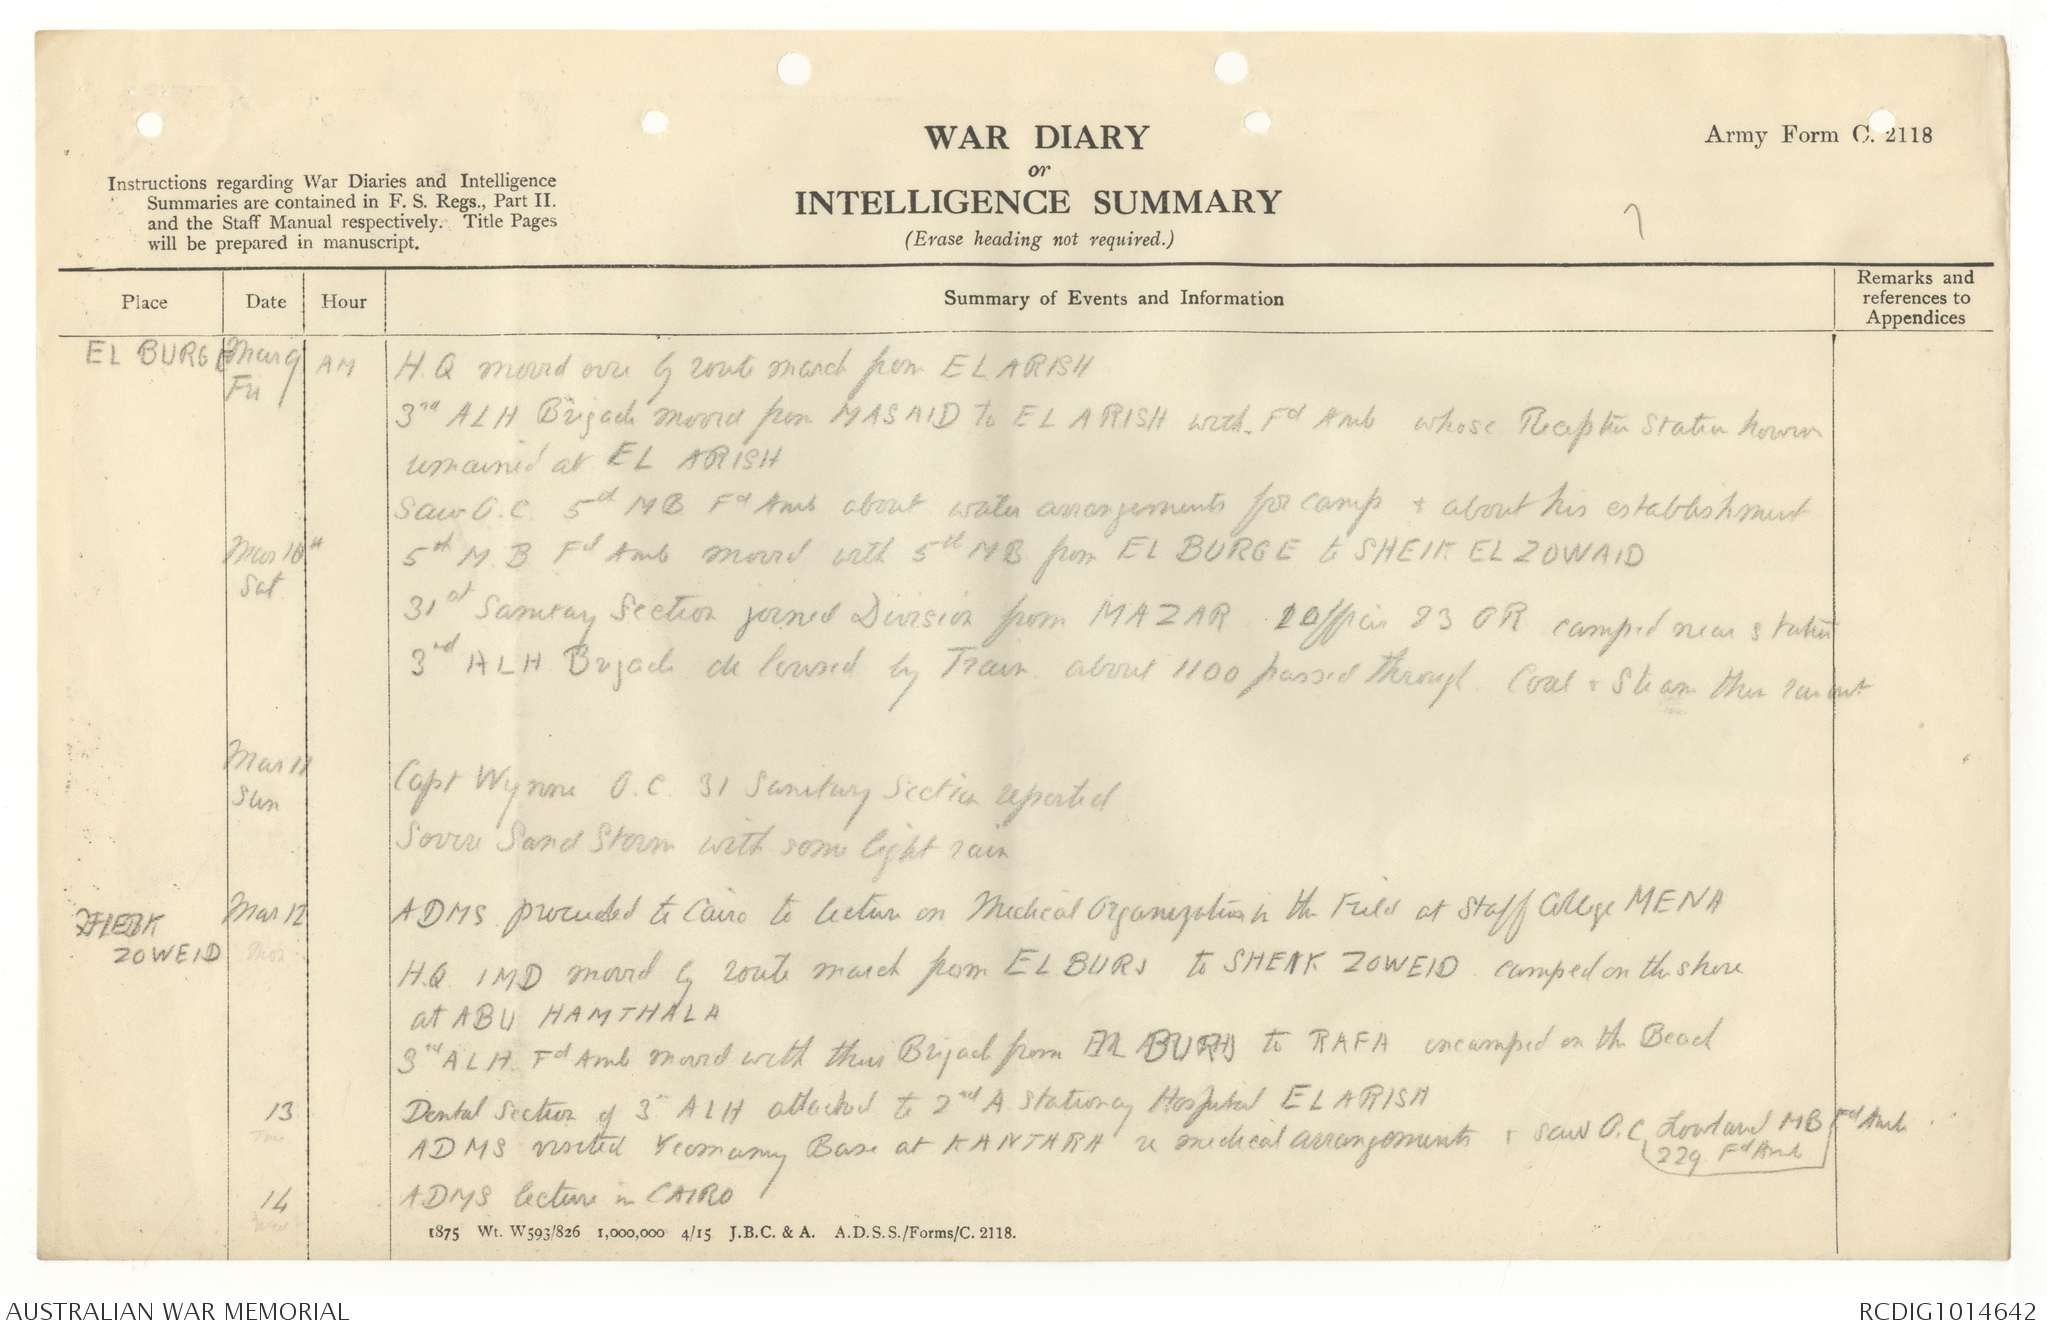 WAR DIARY
or
INTELLIGENCE SUMMARY
(Erase heading not required.)
Army Form C. 2118
Instructions regarding War Diaries and Intelligence
Summaries are contained in F. S. Regs., Part II.
and the Staff Manual respectively. Title Pages
will be prepared in manuscript.
7
Place Date Hour Summary of Events and Information Remarks and references to Appendices
EL BURGE Mar 9 Fri AM H.Q moved over by route march from EL ARISH
3rd ALH Brigade moved from MASAID to EL ARISH with Fd Amb whose Reception Station however
remained at EL ARISH
Saw O.C. 5th MB Fd Amb about water arrangements for camp + about his establishment
Mar 10th Sat 5th M.B Fd Amb moved with 5th MB from EL BURGE to SHEIK EL ZOWAID
31st Sanitary Section joined Division from MAZAR 1 Officer 23 OR camped near station
3rd ALH Brigade de loused by Train about 1100 passed through. Coal + Steam then ran out
Mar 11 Sun Capt Wynne O.C. 31 Sanitary Section reported
Severe Sand Storm with some light rain
ZOWEID Mar 12 Mon ADMS proceeded to Cairo to lecture on Medical Organization in the Field at Staff College MENA
H.Q. IMD moved by route march from EL BURJ to SHEIK ZOWEID camped on the shore
at ABU HAMTHALA
3rd ALH Fd Amb moved with their Brigade from EL BURJ to RAFA encamped on the Beach
13 Tue Dental Section of 3rd ALH attached to 2nd A Stationary Hospital EL ARISH
ADMS visited Yeomanry Base at KANTARA re medical arrangements + saw O.C. Lowland MB Fd Amb
229 Fd Amb
14 Wed ADMS lecture in CAIRO
1875 Wt. W593/826 1,000,000 4/15 J.B.C. & A. A.D.S.S./Forms/C. 2118.
AUSTRALIAN WAR MEMORIAL
RCDIG1014642